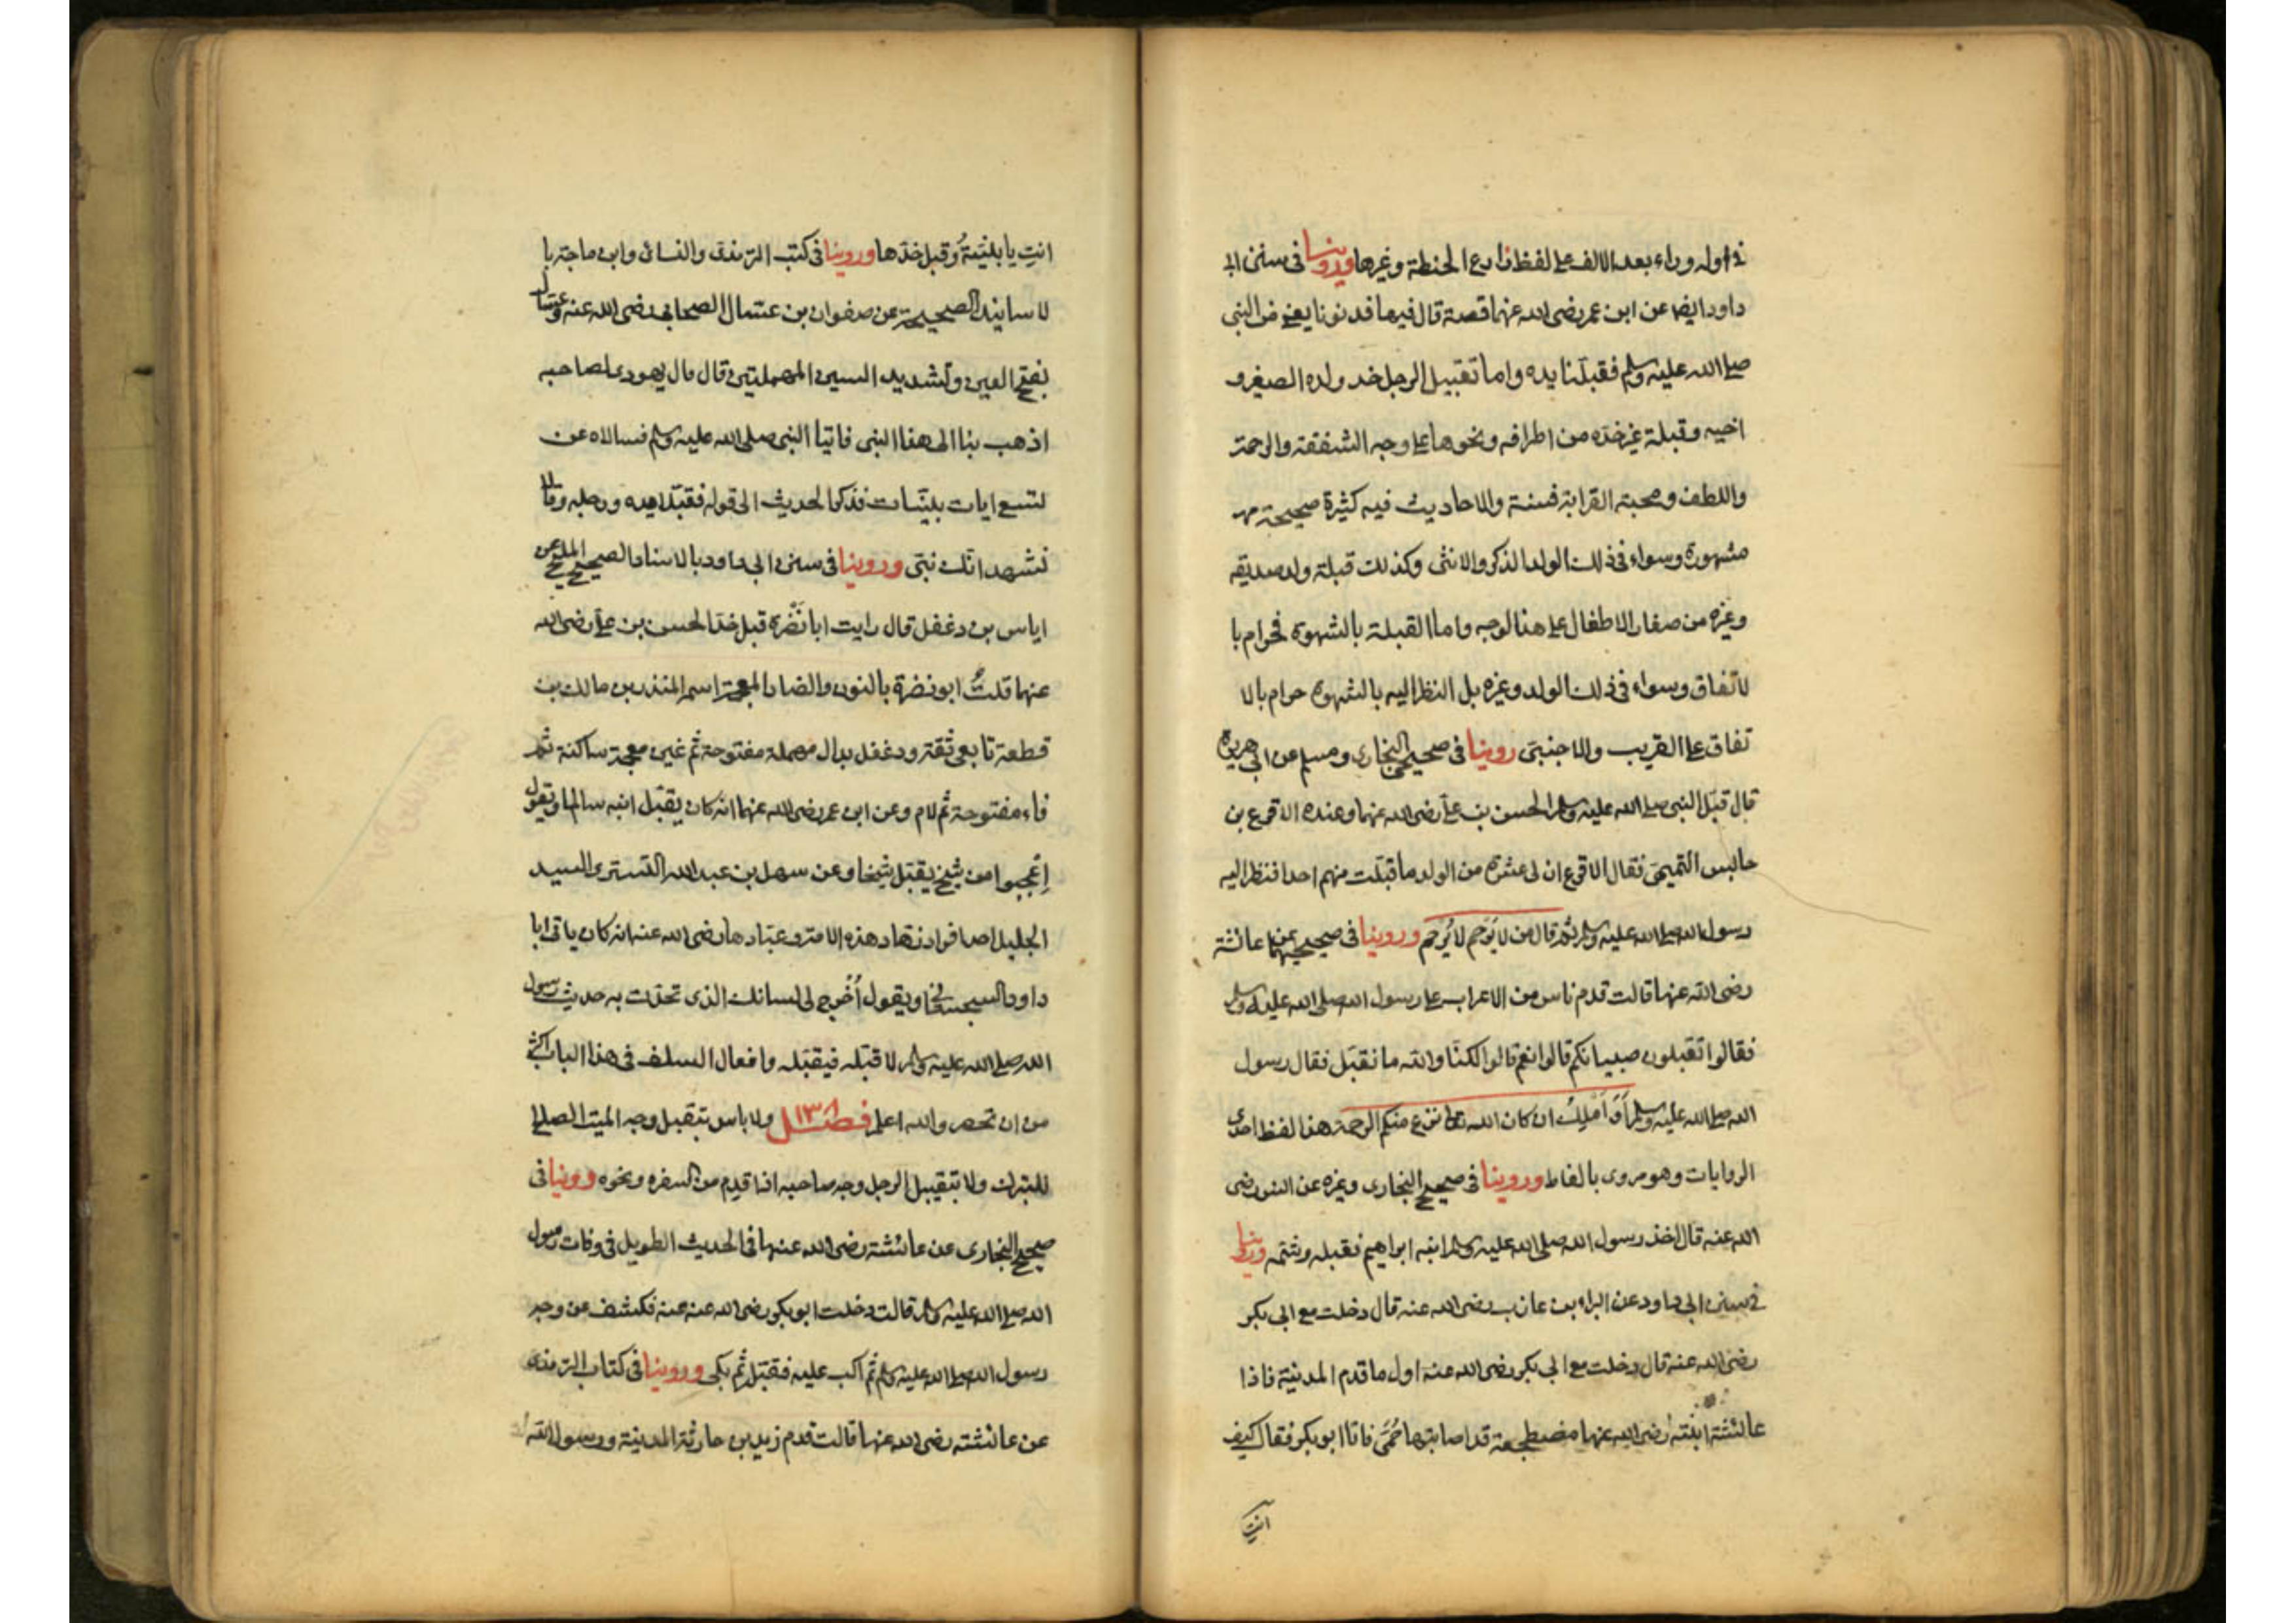 في اوله وراء بعد الالف على لفظ زارع الحنطة وغيرها وروينا في سنن ابي
داود ايضا عن ابن عمر رضى الله عنهما قصة قال فيها فدنونا يعنى من النبى
صلى الله عليه وسلم فقبلنا يده واما تقبيل الرجل خد ولده الصغير و
اخيه وقبلة غير خده من اطرافه ونحوها على وجه الشفقة والرحمة
واللطف ومحبة القرابة فسنة والاحاديث فيه كثيرة صحيحة
مشهورة وسواء فى ذلك الولد الذكر والانثى وكذلك قبلة ولد صديقه
وغيره من صغار الاطفال على هذا الوجه واما القبلة بالشهوة فحرام با
لاتفاق وسواء فى ذلك الولد وغيره بل النظر اليه بالشهوة حرام بالا
تفاق على القريب والاجنبى روينا فى صحيحى البخارى ومسلم عن ابى هريرة
قال قبّل النبى صلى الله عليه وسلم الحسن بن على رضى الله عنهما وعنده الاقرع بن
حابس التميمى فقال الاقرع ان لى عشرة من الولد ما قبّلت منهم احدا فنظر اليه
رسول الله صلى الله عليه وسلم ثم قال من لا يَرحم لا يُرحم وروينا فى صحيحيهما عن عائشة
رضى الله عنها قالت قدم ناس من الاعراب على رسول الله صلى الله عليه وسلم
فقالوا تقبلون صبيانكم قالوا نعم قالوا لكنّا والله ما نقبّل فقال رسول
الله صلى الله عليه وسلم أوَ أملِكُ ان كان الله تعالى نزع منكم الرحمة هذا لفظ احدى
الروايات وهو مروى بالفاظ وروينا فى صحيح البخارى وغيره عن انس رضى
الله عنه قال اخذ رسول الله صلى الله عليه وسلم ابنه ابراهيم فقبله وشمه وروينا
فى سنن ابى داود عن البراء بن عازب رضى الله عنه قال دخلت مع ابى بكر
رضى الله عنه قال دخلت مع ابى بكر رضى الله عنه اول ما قدم المدينة فاذا
عائشة ابنته رضى الله عنها مضطجعة قد اصابتها حُمَّى فاتاها ابو بكر فقال كيف
انتِ
انتِ يا بنيّةُ وقبل خدّها وروينا فى كتب الترمذى والنسائى وابن ماجة با
لاسانيد الصحيحة عن صفوان بن عسّال الصحابى رضى الله عنه وعسّال
بفتح العين وتشديد السين المهملتين قال قال يهودى لصاحبه
اذهب بنا الى هذا النبى فاتيا النبى صلى الله عليه وسلم فسالاه عن
تسع ايات بينات فذكر الحديث الى قوله فقبّلا يده ورجله وقالا
نشهد انك نبى وروينا فى سنن ابى داود بالاسناد الصحيح المليح عن
اياس بن دغفل قال رايت ابا نَضْرَة قبل خدّ الحسن بن على رضى الله
عنهما قلتُ ابو نضرة بالنون والضاد المعجمة اسمه المنذر بن مالك بن
قطعة تابعى ثقة ودغفل بدال مهملة مفتوحة ثم غين معجمة ساكنة ثم
فاء مفتوحة ثم لام وعن ابن عمر رضى الله عنهما انه كان يقبّل ابنه سالما ويقول
اعجبوا من شيخ يقبّل شيخا وعن سهل بن عبد الله التسترى السيد
الجليل احد افراد زهاد هذه الامة وعبّادها رضى الله عنه انه كان ياتى ابا
داود السجستانى ويقول أخرج لى لسانك الذى تحدّث به حديث رسول
الله صلى الله عليه وسلم لاقبّله فيقبّله وافعال السلف فى هذا الباب اكثر
من ان تحصر والله اعلم فصل ١٣ ولا باس بتقبيل وجه الميت الصالح
للتبرك ولا بتقبيل الرجل وجه صاحبه اذا قدِم من السفره ونحوه وروينا فى
صحيح البخارى عن عائشة رضى الله عنها فى الحديث الطويل فى وفات رسول
الله صلى الله عليه وسلم قالت دخلت ابو بكر رضى الله عنه عنه فكشف عن وجه
رسول الله صلى الله عليه وسلم ثم اكب عليه فقبّل ثم بكى وروينا فى كتاب الترمذى
عن عائشته رضى الله عنها قالت قدم زيد بن حارثة المدينة ورسول الله